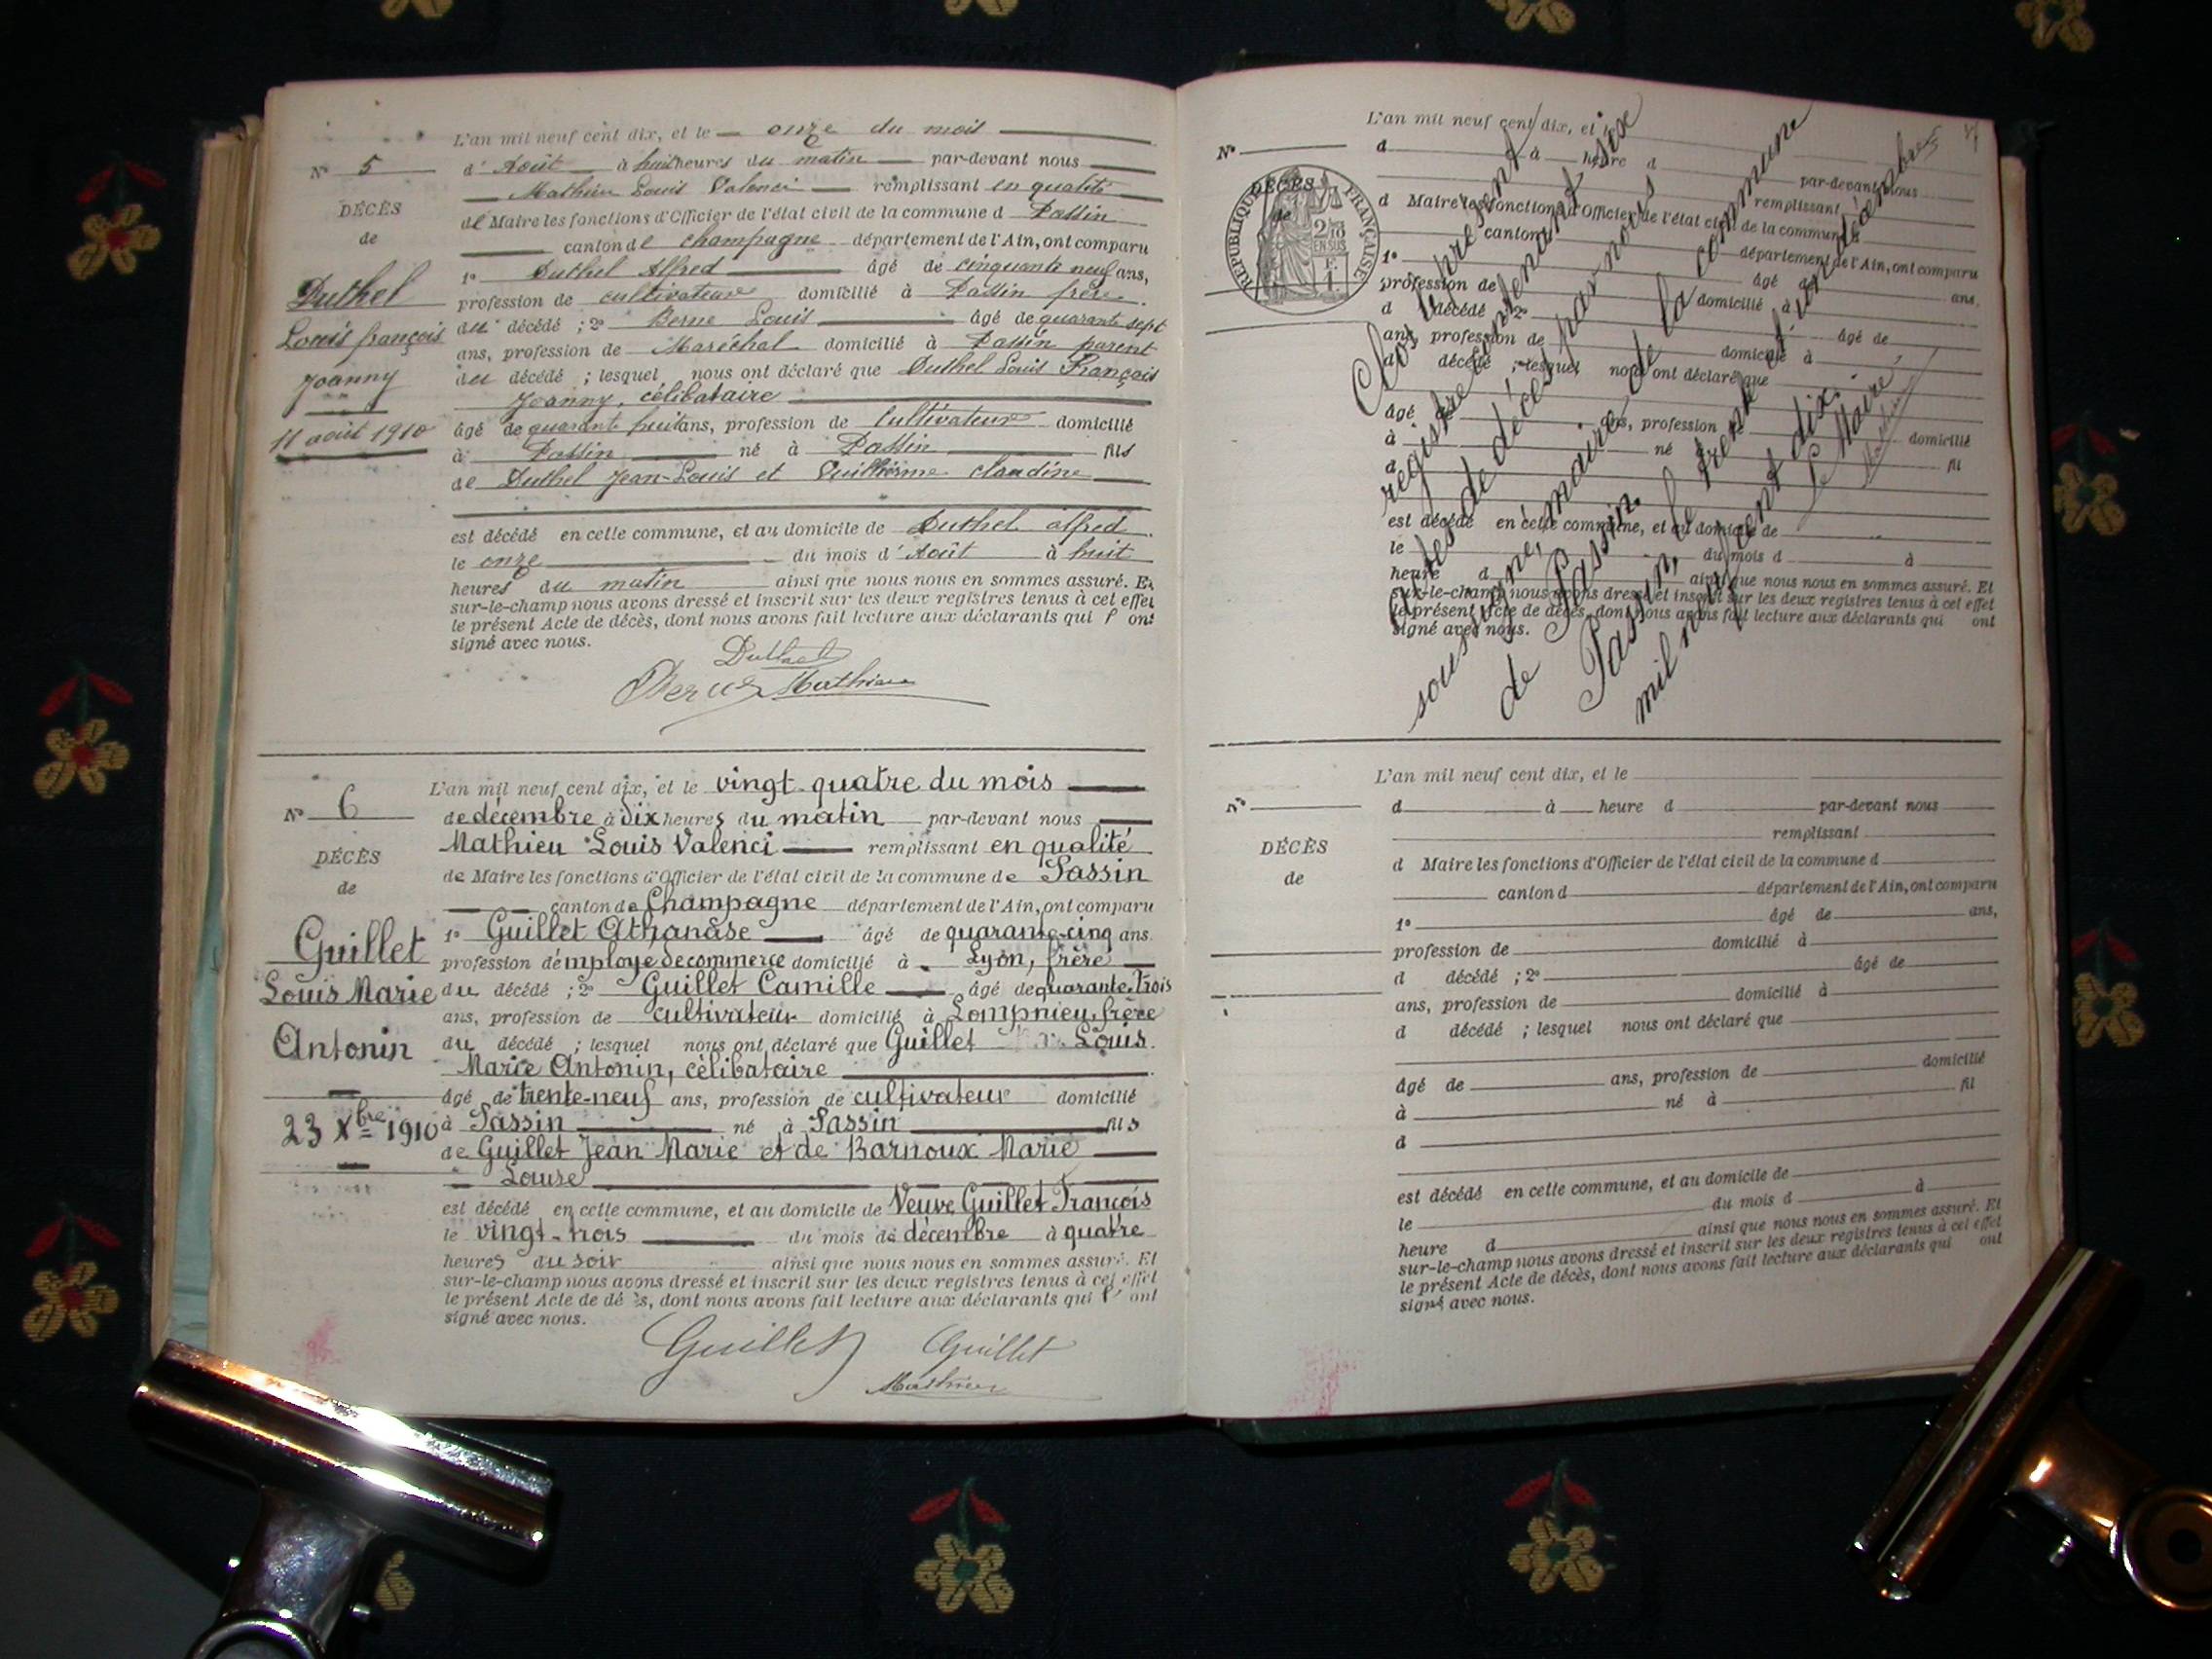 L'an mil neuf cent dix, et le onze du mois
N° 5
d'Août à huit heures du matin par-devant nous
Mathieu Louis Valenci remplissant en qualité
DÉCÈS
de Maire les fonctions d'Officier de l'état civil de la commune d Passin
de
canton de Champagne département de l'Ain, ont comparu
Duthel
1° Duthel Alfred âgé de cinquante neuf ans,
profession de cultivateur domicilié à Passin frère
Louis françois
du décédé ; 2° Berne Louis âgé de quarante sept
ans, profession de Maréchal domicilié à Passin parent
Joanny
du décédé ; lesquel nous ont déclaré que Duthel Louis François
Joanny, célibataire
11 août 1910
âgé de quarante huit ans, profession de Cultivateur domicilié
à Passin né à Passin fils
de Duthel Jean-Louis et Guillerme Claudine
est décédé en cette commune, et au domicile de Duthel Alfred
le onze du mois d'Août à huit
heures du matin ainsi que nous nous en sommes assuré. Et
sur-le-champ nous avons dressé et inscrit sur les deux registres tenus à cet effet
le présent Acte de décès, dont nous avons fait lecture aux déclarants qui l' ont
signé avec nous.
Duthel
Berne Mathieu
L'an mil neuf cent dix, et le vingt-quatre du mois
N° 6
de décembre à dix heures du matin par-devant nous
Mathieu Louis Valenci remplissant en qualité
DÉCÈS
de Maire les fonctions d'Officier de l'état civil de la commune de Passin
de
canton de Champagne département de l'Ain, ont comparu
Guillet
1° Guillet Athanase âgé de quarante-cinq ans.
profession d'employé de commerce domicilié à Lyon, frère
Louis Marie
du décédé ; 2° Guillet Camille âgé de quarante-trois
ans, profession de cultivateur domicilié à Lompnieu, frère
Antonin
du décédé ; lesquel nous ont déclaré que Guillet Louis
Marie Antonin, célibataire
âgé de trente-neuf ans, profession de cultivateur domicilié
23 Xbre 1910
à Passin né à Passin fils
de Guillet Jean Marie et de Barnoux Marie
Louise
est décédé en cette commune, et au domicile de Veuve Guillet François
le vingt-trois du mois de décembre à quatre
heures du soir ainsi que nous nous en sommes assuré. Et
sur-le-champ nous avons dressé et inscrit sur les deux registres tenus à cet effet
le présent Acte de décès, dont nous avons fait lecture aux déclarants qui l' ont
signé avec nous.
Guillet Guillet
Mathieu
L'an mil neuf cent dix, et le
N°
d à heure d par-devant nous
remplissant
DÉCÈS
de
RÉPUBLIQUE FRANÇAISE
2/10 EN SUS
F. 1.
d Maire les fonctions d'Officier de l'état civil de la commune d
canton d département de l'Ain, ont comparu
1° âgé de ans,
profession de domicilié à
d décédé ; 2° âgé de
ans, profession de domicilié à
d décédé ; lesquel nous ont déclaré que
âgé de ans, profession domicilié
à né à fil
d
est décédé en cette commune, et au domicile de
le du mois d à
heure d ainsi que nous nous en sommes assuré. Et
sur-le-champ nous avons dressé et inscrit sur les deux registres tenus à cet effet
le présent Acte de décès, dont nous avons fait lecture aux déclarants qui ont
signé avec nous.
Clos le présent
registre contenant six
actes de décès par nous
soussigné, maire de la commune
de Passin.
Passin, le trente et un décembre
mil neuf cent dix.
Le Maire,
L'an mil neuf cent dix, et le
N°
d à heure d par-devant nous
remplissant
DÉCÈS
d Maire les fonctions d'Officier de l'état civil de la commune d
de
canton d département de l'Ain, ont comparu
1° âgé de ans,
profession de domicilié à
d décédé ; 2° âgé de
ans, profession de domicilié à
d décédé ; lesquel nous ont déclaré que
âgé de ans, profession de domicilié
à né à fil
d
est décédé en cette commune, et au domicile de
le du mois d à
heure d ainsi que nous nous en sommes assuré. Et
sur-le-champ nous avons dressé et inscrit sur les deux registres tenus à cet effet
le présent Acte de décès, dont nous avons fait lecture aux déclarants qui ont
signé avec nous.